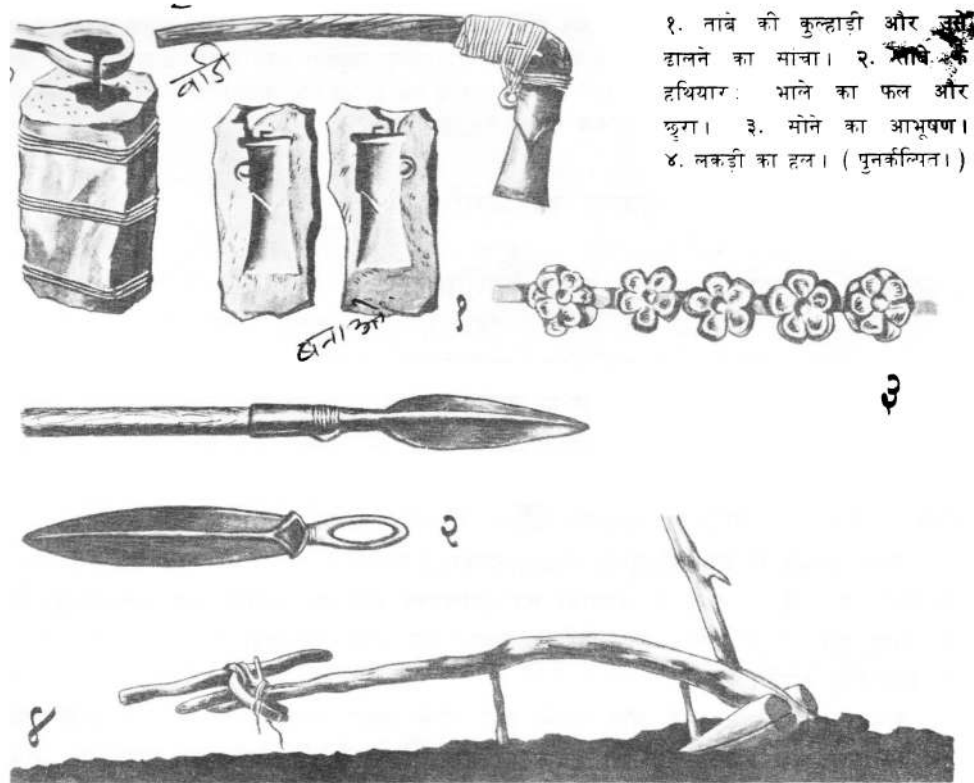 १. ताबे की कुल्हाड़ी और उसे
ढालने का सांचा। २. ताबे के
हथियार : भाले का फल और
छुरा। ३. सोने का आभूषण।
४. लकड़ी का हल। ( पुनर्कल्पित। )
१
३
२
४